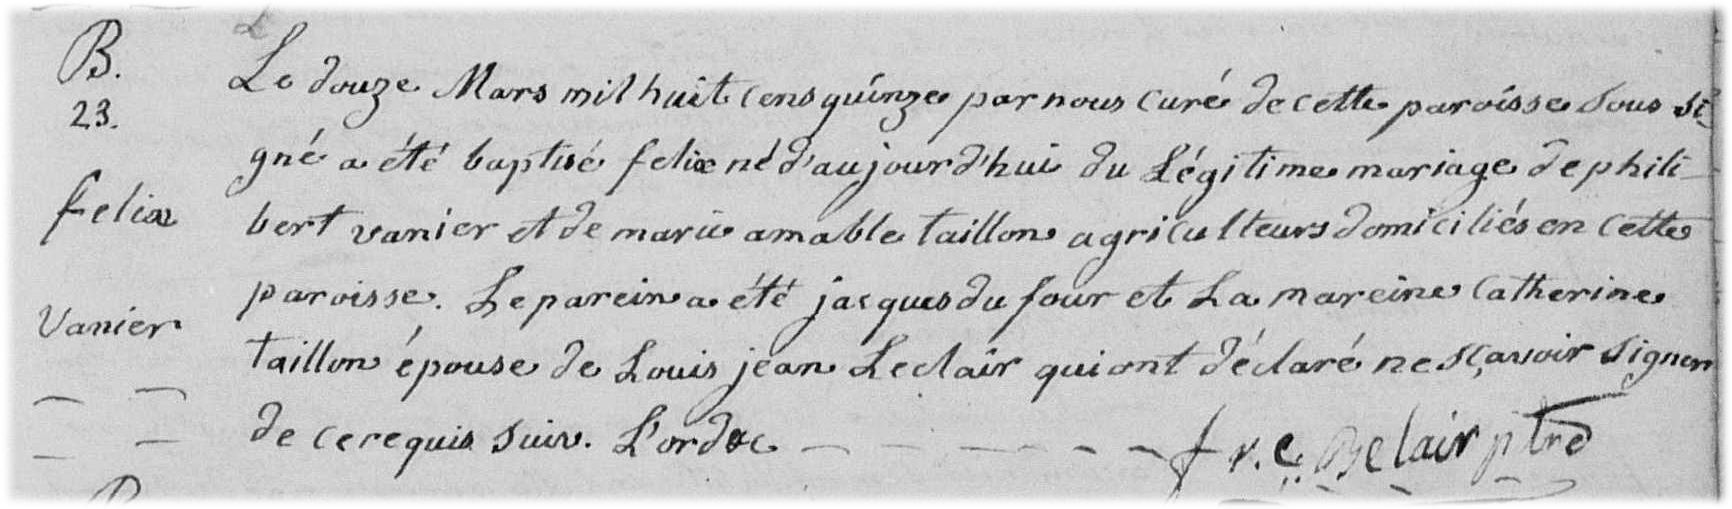 B.
23.
felix
Vanier
Le douze Mars mil huit cens quinze par nous curé de cette paroisse sous si-
gné a été baptisé felix né d'aujourd'hui du Légitime mariage de phili-
bert vanier et de marie amable taillon agriculteurs domiciliés en cette
paroisse. Le parein a été jacques du four et La mareine Catherine
taillon épouse de Louis jean Leclair qui ont déclaré ne sçavoir signer
de ce requis suiv. L'ord &c
Belair ptre